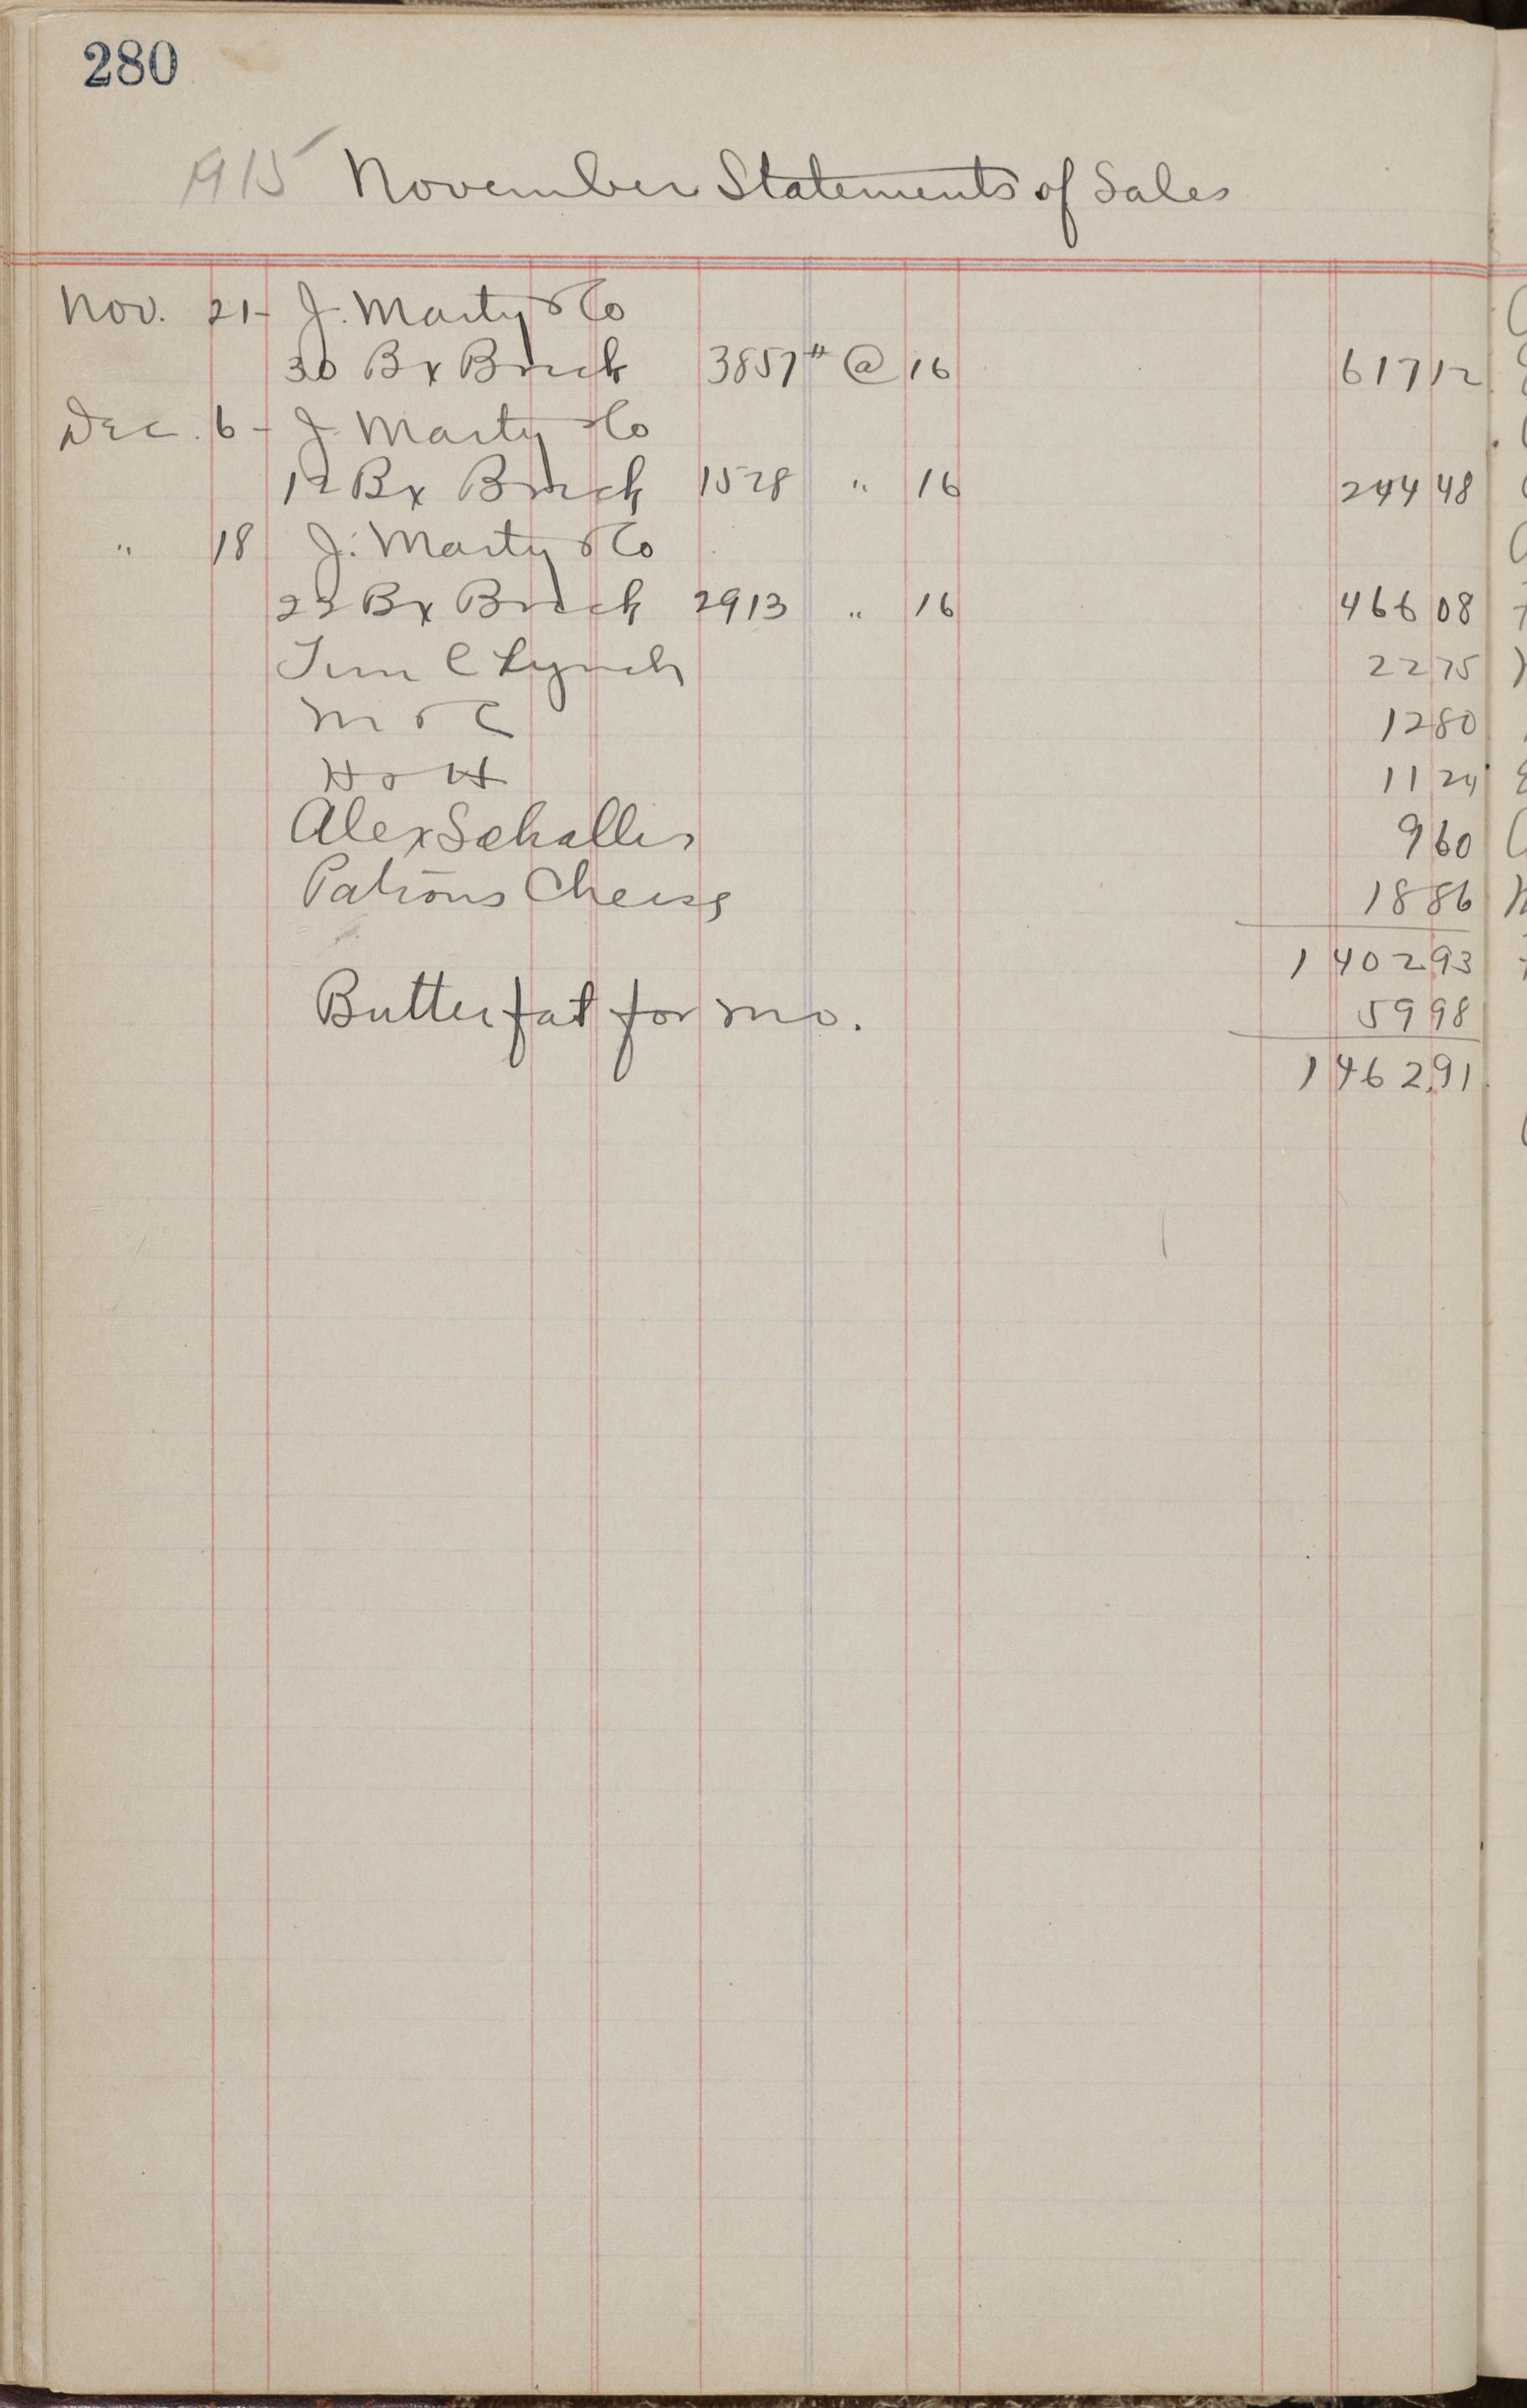 280
1915 November Statements of Sales
Nov. 21- J. Marty & Co
30 Bx Brick 3857# @ 16 617 12
Dec. 6- J. Marty & Co
12 Bx Brick 1528 " 16 244 48
" 18 J. Marty & Co
23 Bx Brick 2913 " 16 466 08
Tim C Lynch 22 75
M & C 12 80
H & H 11 24
Alex Schaller 9 60
Patrons Cheese 18 86
1 402 93
Butter fat for mo. 59 98
1 462.91